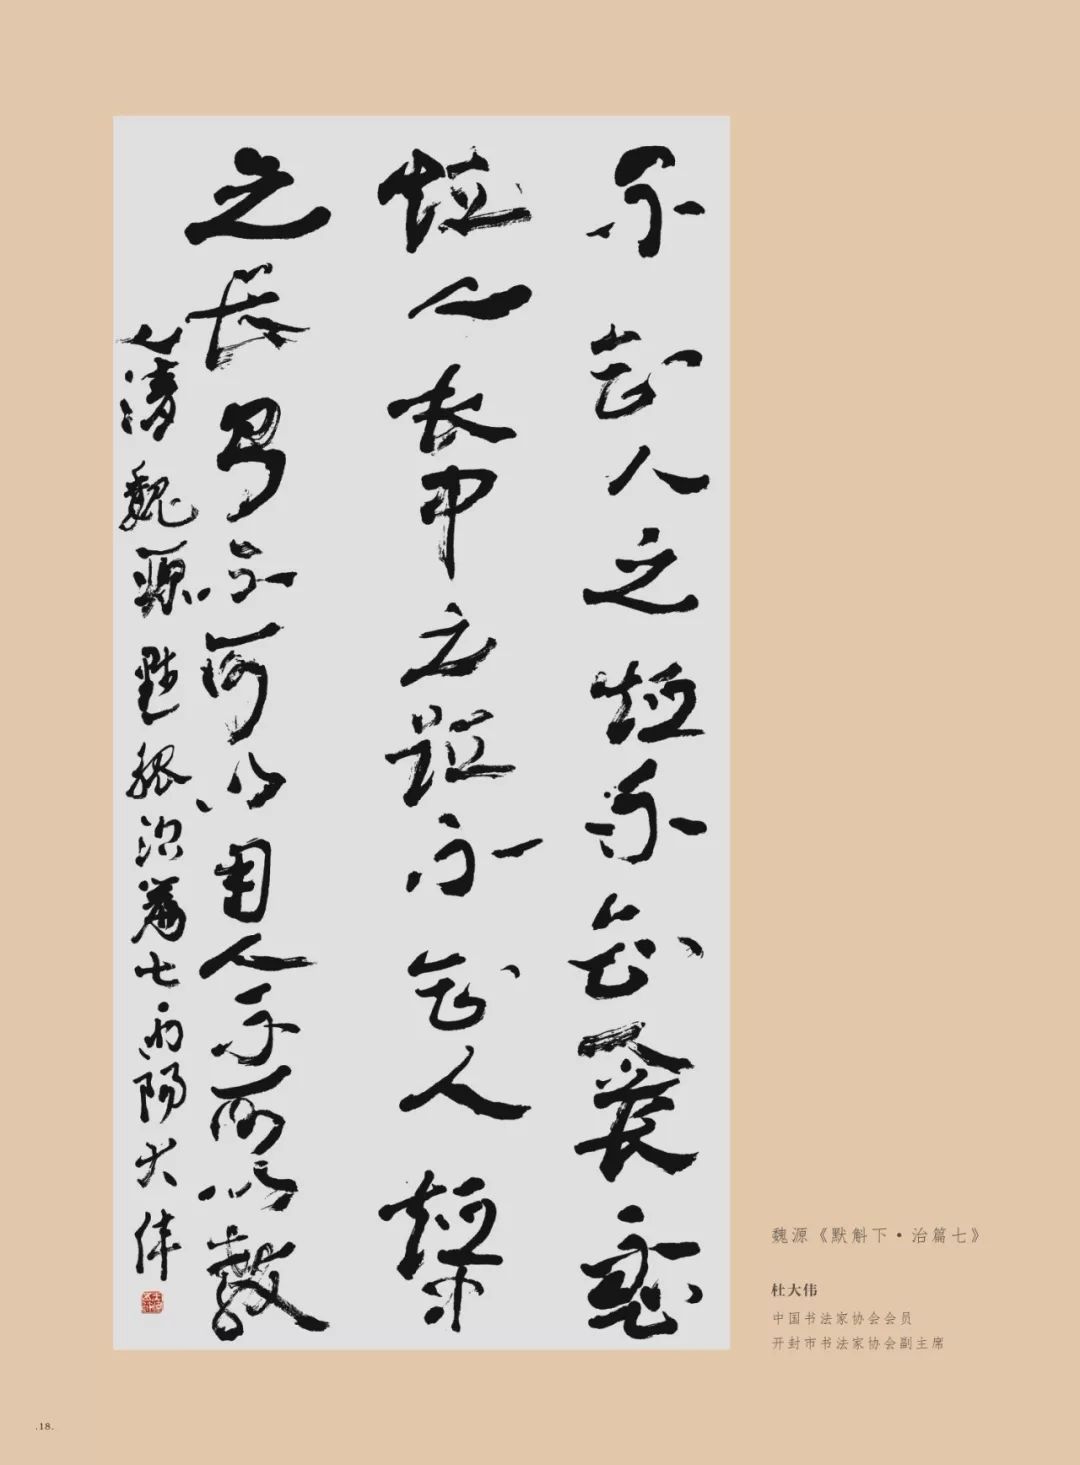 不知人之短不知人长不知
短人长中之短不知人短中
之长则不可以用人不可以教
人 清魏源默觚治篇七 雨阳大伟
魏源《默斛下·治篇七》
杜大伟
中国书法家协会会员
开封市书法家协会副主席
.18.